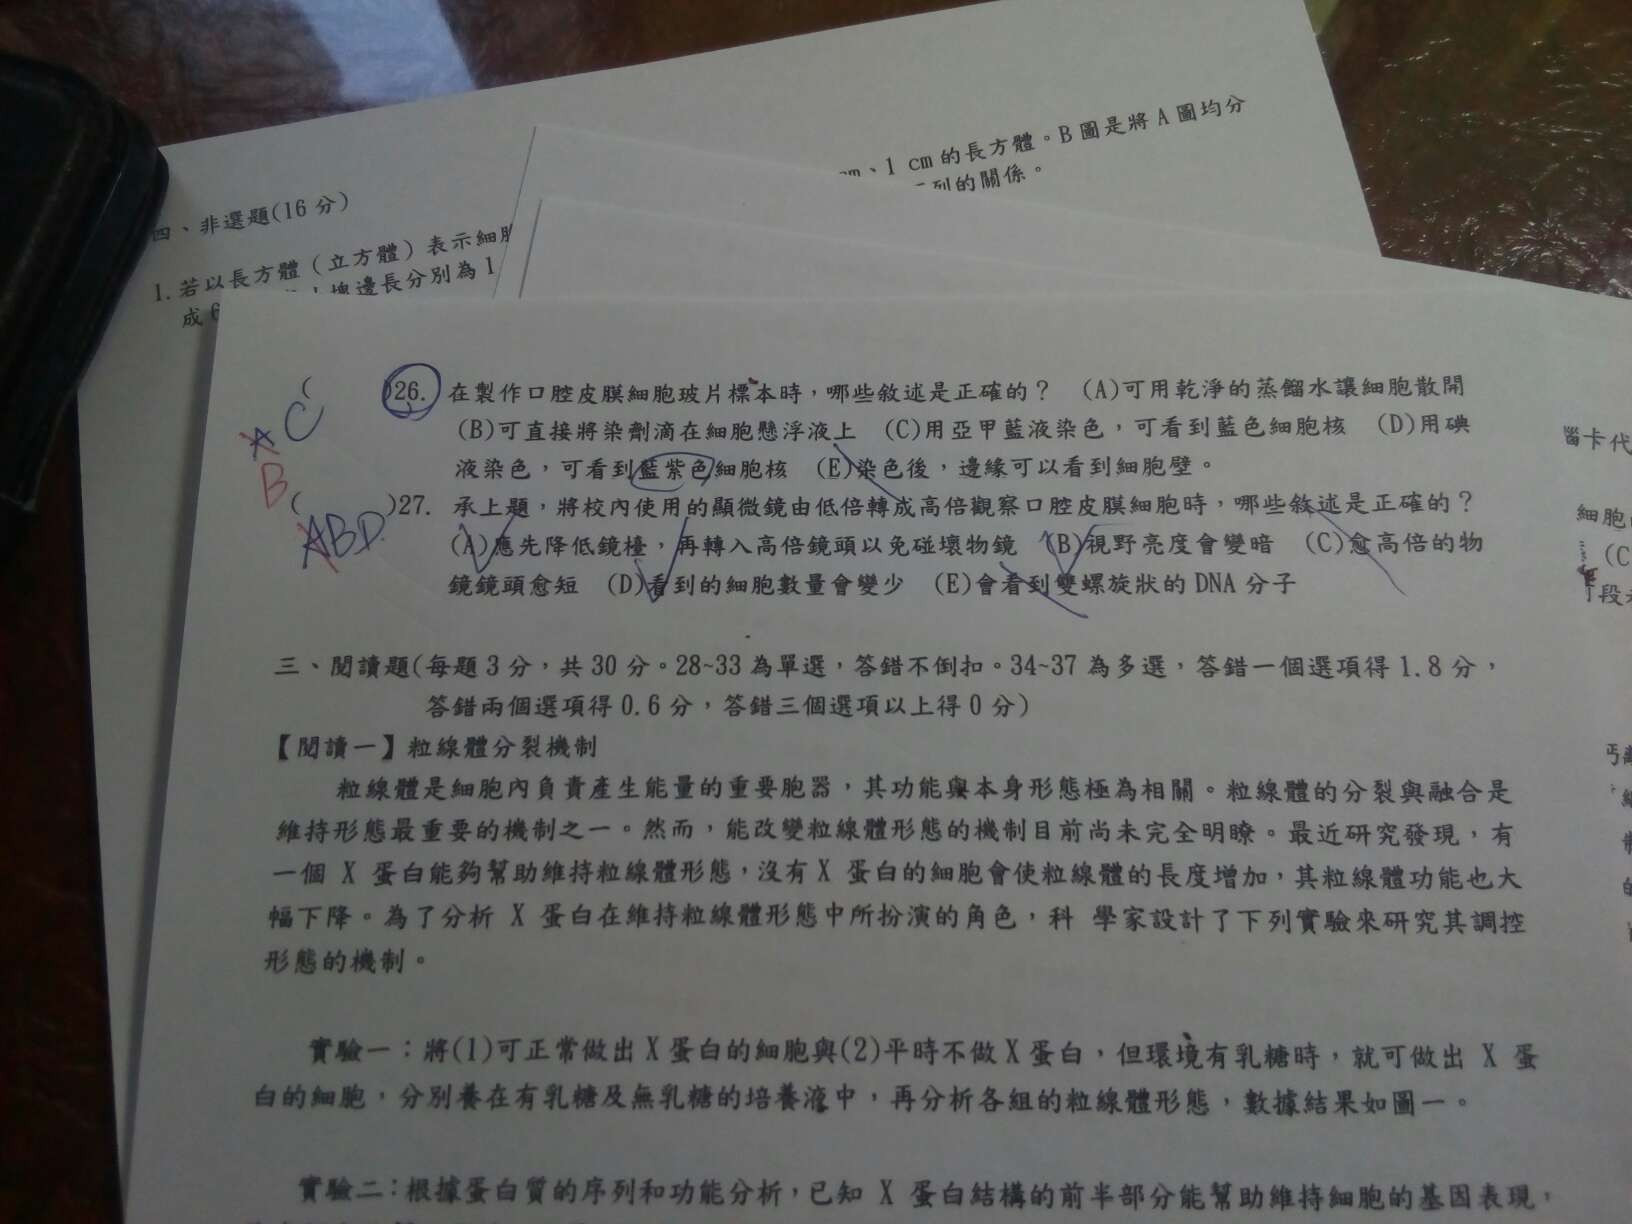 四、非選題(16 分)
1. 若以長方體（立方體）表示細
cm、1 cm 的長方體。B 圖是將 A 圖均分
塊邊長分別為 1
列的關係。
成 6
C
A
B
( )26. 在製作口腔皮膜細胞玻片標本時，哪些敘述是正確的？ (A)可用乾淨的蒸餾水讓細胞散開
(B)可直接將染劑滴在細胞懸浮液上 (C)用亞甲藍液染色，可看到藍色細胞核 (D)用碘
液染色，可看到藍紫色細胞核 (E)染色後，邊緣可以看到細胞壁。
ABD
( )27. 承上題，將校內使用的顯微鏡由低倍轉成高倍觀察口腔皮膜細胞時，哪些敘述是正確的？
(A)應先降低鏡檯，再轉入高倍鏡頭以免碰壞物鏡 (B)視野亮度會變暗 (C)愈高倍的物
鏡鏡頭愈短 (D)看到的細胞數量會變少 (E)會看到雙螺旋狀的 DNA 分子
三、閱讀題(每題 3 分，共 30 分。28~33 為單選，答錯不倒扣。34~37 為多選，答錯一個選項得 1.8 分，
答錯兩個選項得 0.6 分，答錯三個選項以上得 0 分)
【閱讀一】粒線體分裂機制
粒線體是細胞內負責產生能量的重要胞器，其功能與本身形態極為相關。粒線體的分裂與融合是
維持形態最重要的機制之一。然而，能改變粒線體形態的機制目前尚未完全明瞭。最近研究發現，有
一個 X 蛋白能夠幫助維持粒線體形態，沒有 X 蛋白的細胞會使粒線體的長度增加，其粒線體功能也大
幅下降。為了分析 X 蛋白在維持粒線體形態中所扮演的角色，科 學家設計了下列實驗來研究其調控
形態的機制。
實驗一：將(1)可正常做出 X 蛋白的細胞與(2)平時不做 X 蛋白，但環境有乳糖時，就可做出 X 蛋
白的細胞，分別養在有乳糖及無乳糖的培養液中，再分析各組的粒線體形態，數據結果如圖一。
實驗二：根據蛋白質的序列和功能分析，已知 X 蛋白結構的前半部分能幫助維持細胞的基因表現，
卡代
細胞
(C
段